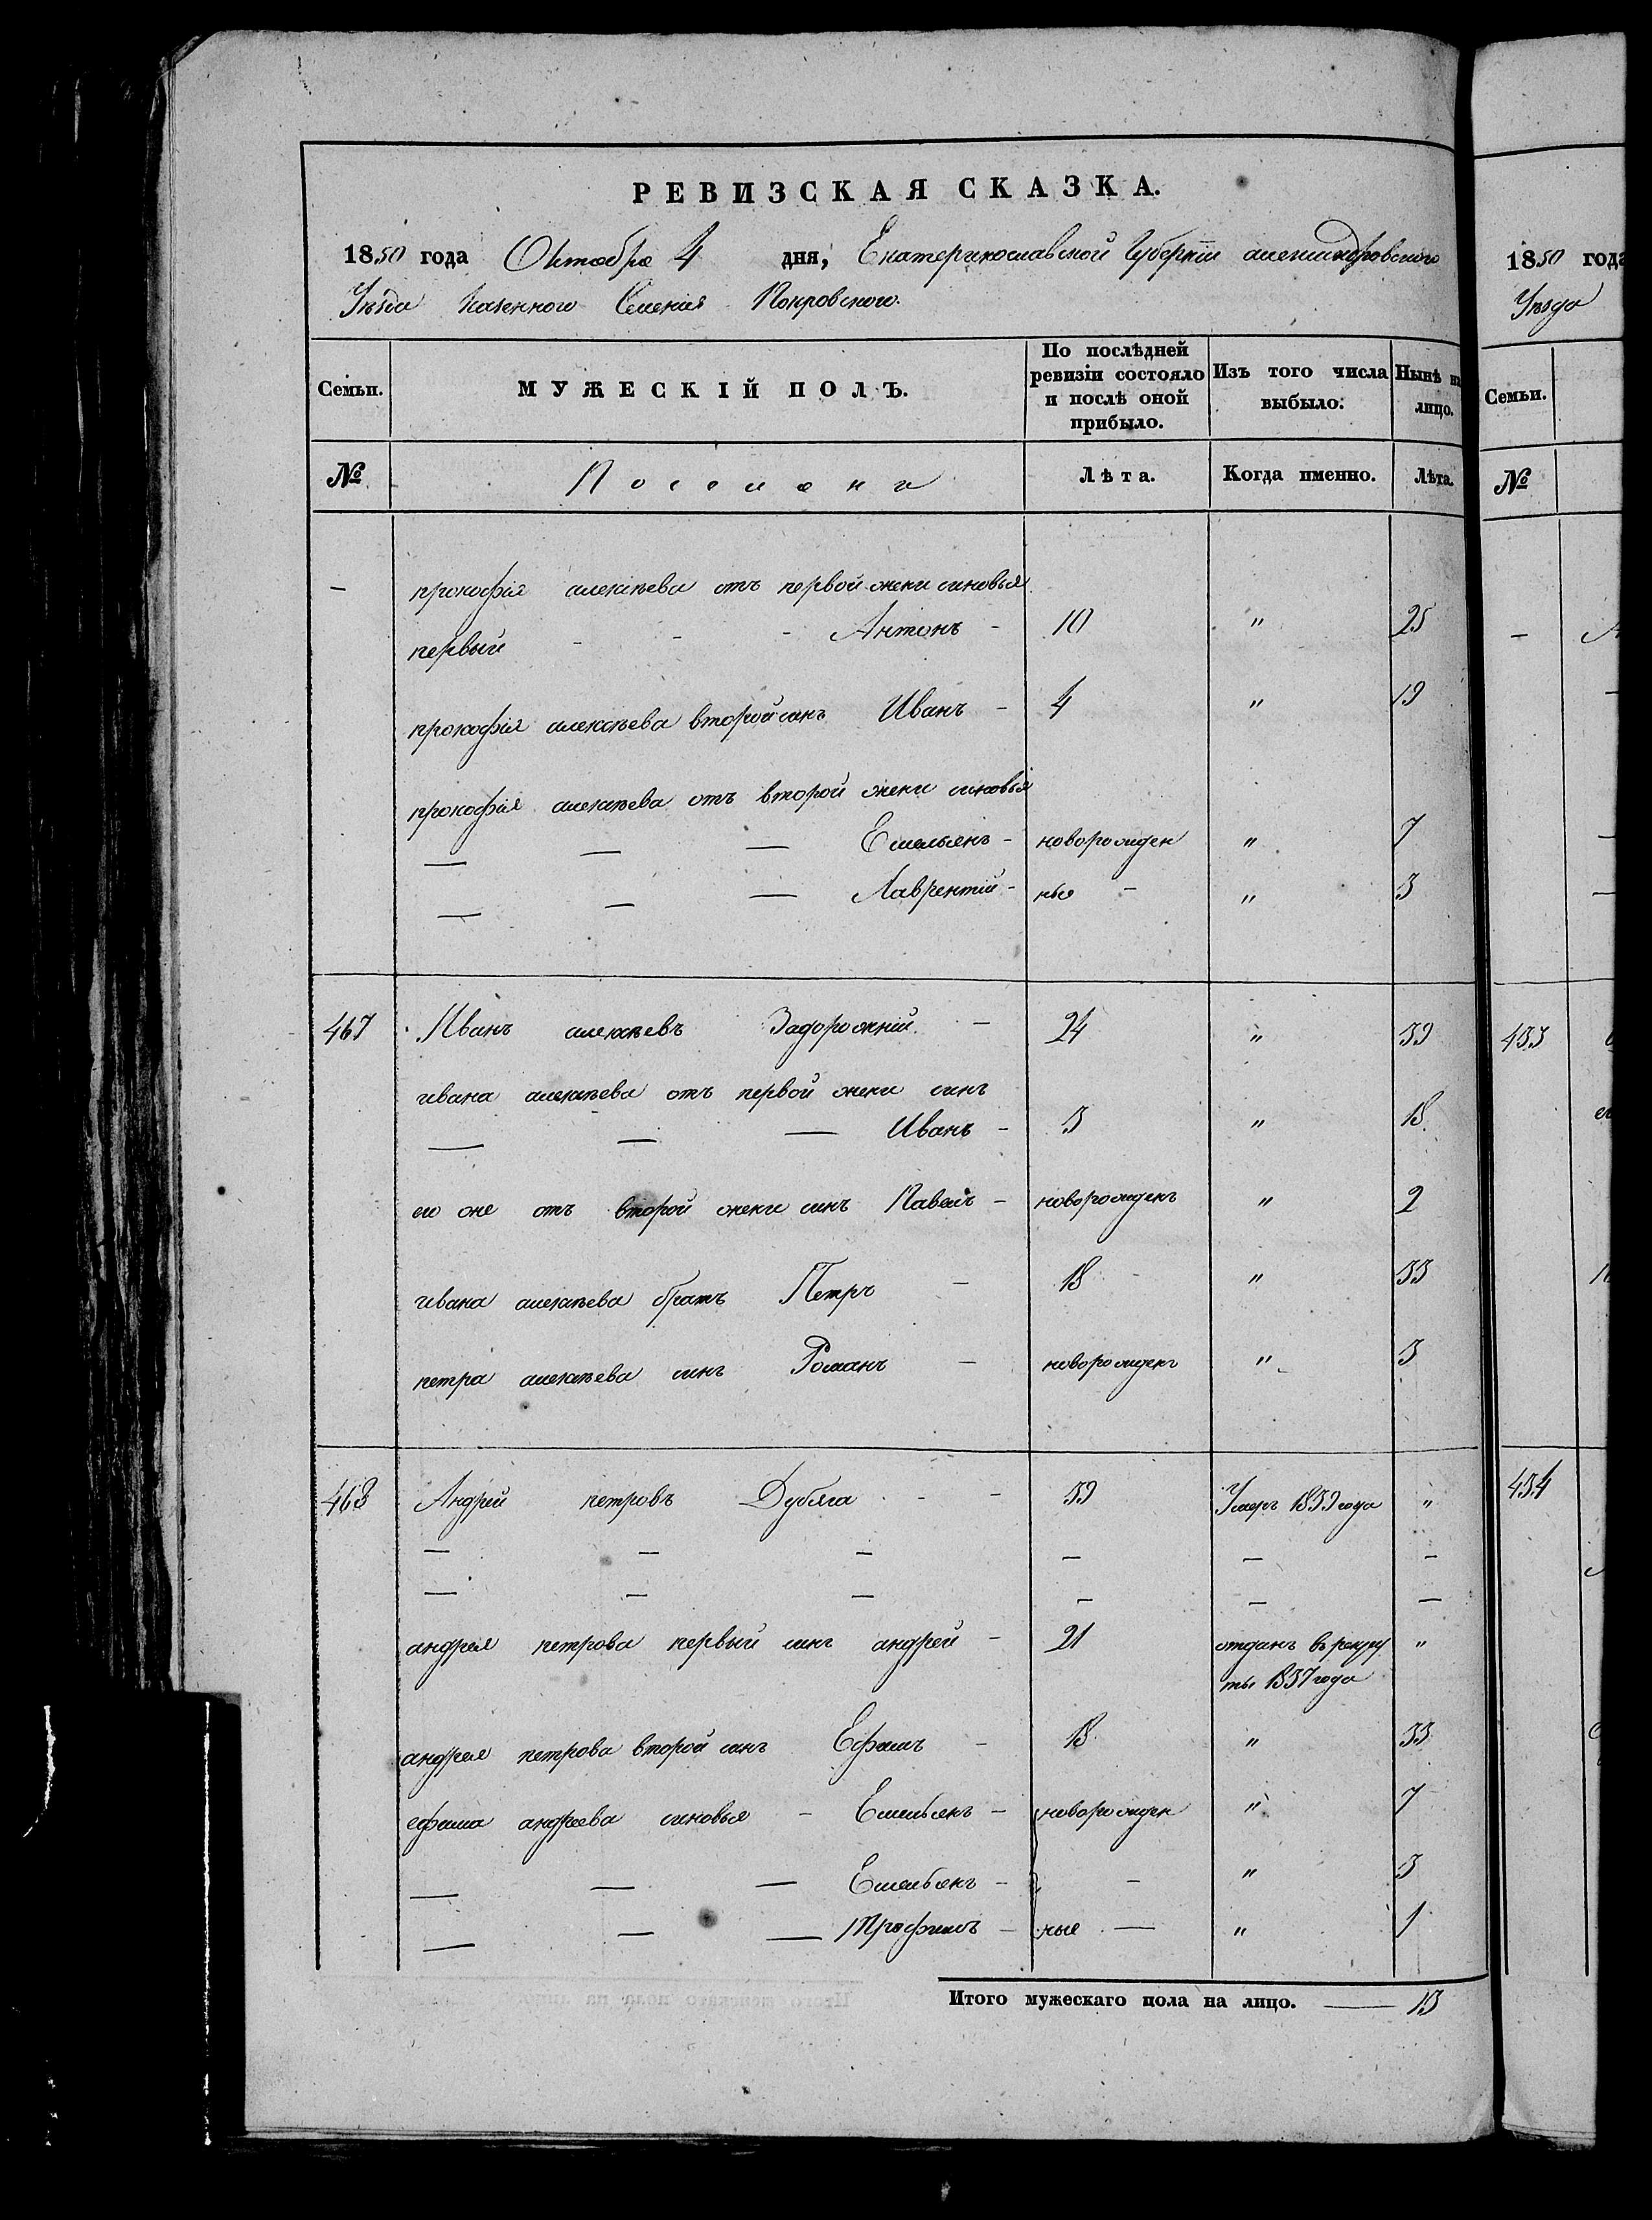 РЕВИЗСКАЯ СКАЗКА.
1850 года Октября 4 дня, Екатеринославской Губерніи александровского
Уѣзда Казенного Селенія Покровского.
Семьи. МУЖЕСКІЙ ПОЛЪ. По послѣдней ревизіи состояло и послѣ оной прибыло. Изъ того числа выбыло. Нынѣ на лицо.
№ Поселяни Лѣта. Когда именно. Лѣта.
— прокофія алексѣева отъ первой жени синовья
первый - - - Антонъ - 10 " 25
прокофія алексѣева второй синъ Иванъ - 4 " 19
прокофія алексѣева отъ второй жени синовья
— — — Емельянъ - новорожден " 7
— — — Лаврентій - ные - " 3
467 Иванъ алексѣевъ Задорожній. — 24 " 39
ивана алексѣева отъ первой жени синъ
— — — Иванъ - 3 " 18
его же отъ второй жени синъ Павелъ - новорожденъ " 2
ивана алексѣева братъ Петръ — 18 - " 33
петра алексѣева синъ Романъ — новорожденъ " 3
468 Андрей петровъ Дубяга - - 39 Умеръ 1839 года "
— — — — — —
— — — — — —
андрея петрова первый синъ андрей - 21 отданъ въ рекру
ты 1837 года "
андрея петрова второй синъ Ефимъ - 18 " 33
ефима андреева синовья - Емельянъ - новорожден " 7
— — — Емельянъ - - " 3
— — — Трофимъ - ные — " 1
Итого мужескаго пола на лицо. — 13
1850 года
Уѣзда
Семьи.
№
—
433
434